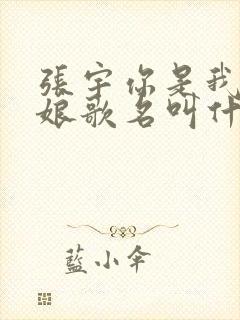 張宇你是我
娘歌名叫什
藍小傘